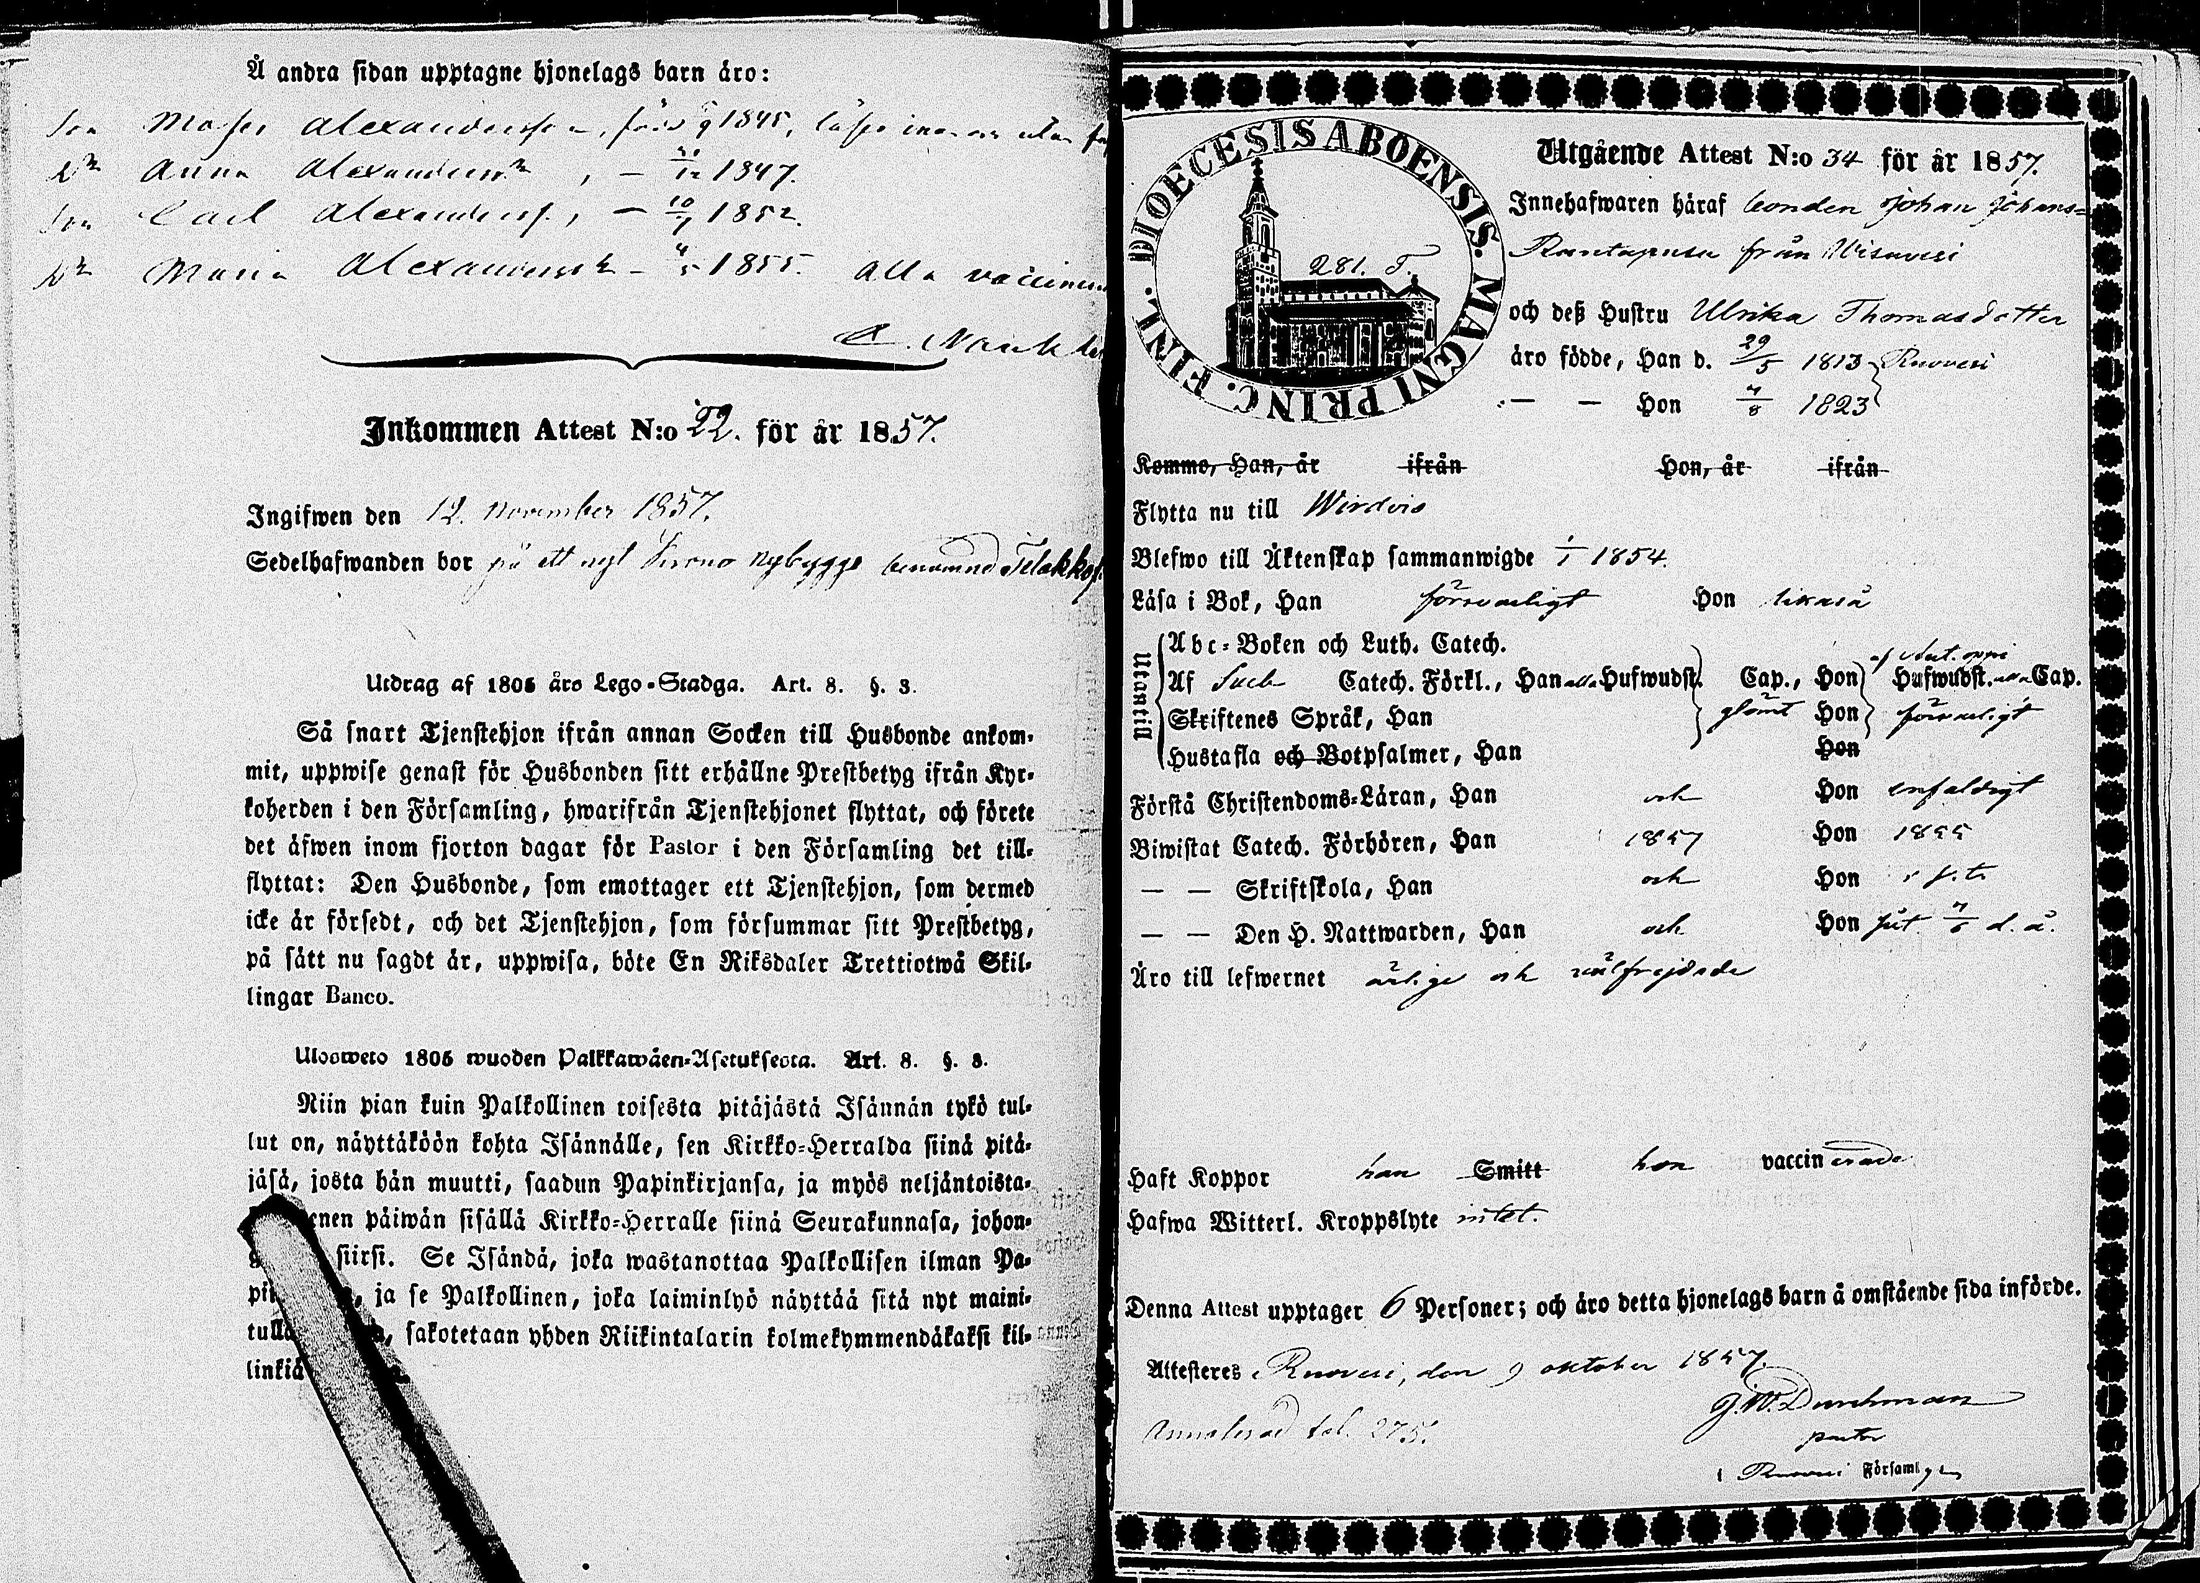 Å andra sidan upptagne hjonelags barn äro:
Son Moses Alexandersson, född 9 1845, läser innan utan
Dr Anna Alexandersdr, — 12 1847.
Son Carl Alexanderss., — 10 1852.
Dr Maria Alexandersdr — 4/5 1855. Alla vaccinerade
Inkommen Attest N:o 22. för år 1857.
Ingifwen den 12. november 1857.
Sedelhafwanden bor på ett nytt Krono nybygge benämnd
Utdrag af 1805 års Lego-Stadga. Art. 8. §. 3.
Så snart Tjenstehjon ifrån annan Socken till Husbonde ankom-
mit, uppwise genast för Husbonden sitt erhållne Prestbetyg ifrån Kyr-
koherden i den Församling, hwarifrån Tjenstehjonet flyttat, och förete
det äfwen inom fjorton dagar för Pastor i den Församling det till-
flyttat: Den Husbonde, som emottager ett Tjenstehjon, som dermed
icke är försedt, och det Tjenstehjon, som försummar sitt Prestbetyg,
på sätt nu sagdt är, uppwisa, böte En Riksdaler Trettiotwå Skil-
lingar Banco.
Ulosweto 1805 wuoden Palkkawäen-Asetuksesta. Art. 8. §. 3.
Niin pian kuin Palkollinen toisesta pitäjästä Isännän tykö tul-
lut on, näyttäköön kohta Isännälle, sen Kirkko-Herralda siinä pitä-
jäsä, josta hän muutti, saadun Papinkirjansa, ja myös neljäntoista-
enen päiwän sisällä Kirkko-Herralle siinä Seurakunnasa, johon-
siirsi. Se Isändä, joka wastanottaa Palkollisen ilman Pa-
pi ja se Palkollinen, joka laiminlyö näyttää sitä nyt maini-
tulla sakotetaan yhden Riikintalarin kolmekymmendäkaksi kil-
linkiä
DIOECESIS ABOENSIS. MAGNI PRINC. FINL.
281. T.
Utgående Attest N:o 34 för år 1857.
Innehafwaren häraf bonden Johan Johans=
Rantapusa från Wisuvesi
och deß Hustru Ulrika Thomasdotter
äro födde, Han d. 29/5 1813 Ruovesi
— — Hon 4/8 1823
Kommo, Han, år ifrån Hon, år ifrån
Flytta nu till Wirdois
Blefwo till Äktenskap sammanwigde 1/1 1854.
Läsa i Bok, Han försvarligt Hon likaså
Utantill
Abc-Boken och Luth. Catech.
Af Sveb. Catech. Förkl., Han alla Hufwudst. Cap., Hon Hufwudst. alla Cap.
Skriftenes Språk, Han glömt Hon försvarligt
Hustafla och Botpsalmer, Han Hon
Förstå Christendoms-Läran, Han och Hon enfaldigt
Biwistat Catech. Förhören, Han 1857 Hon 1855
— — Skriftskola, Han och Hon
— — Den H. Nattwarden, Han och Hon d. å.
Äro till lefwernet ärlige och välfrejdade
Haft Koppor han Smitt hon vaccinerade
Hafwa Witterl. Kroppslyte intet.
Denna Attest upptager 6 Personer; och äro detta hjonelags barn å omstående sida införde.
Attesteres Ruovesi, den 9 oktober 1857.
G.W. Durchman
pastor
i Ruovesi Församlgn
Annoterad fol. 275.